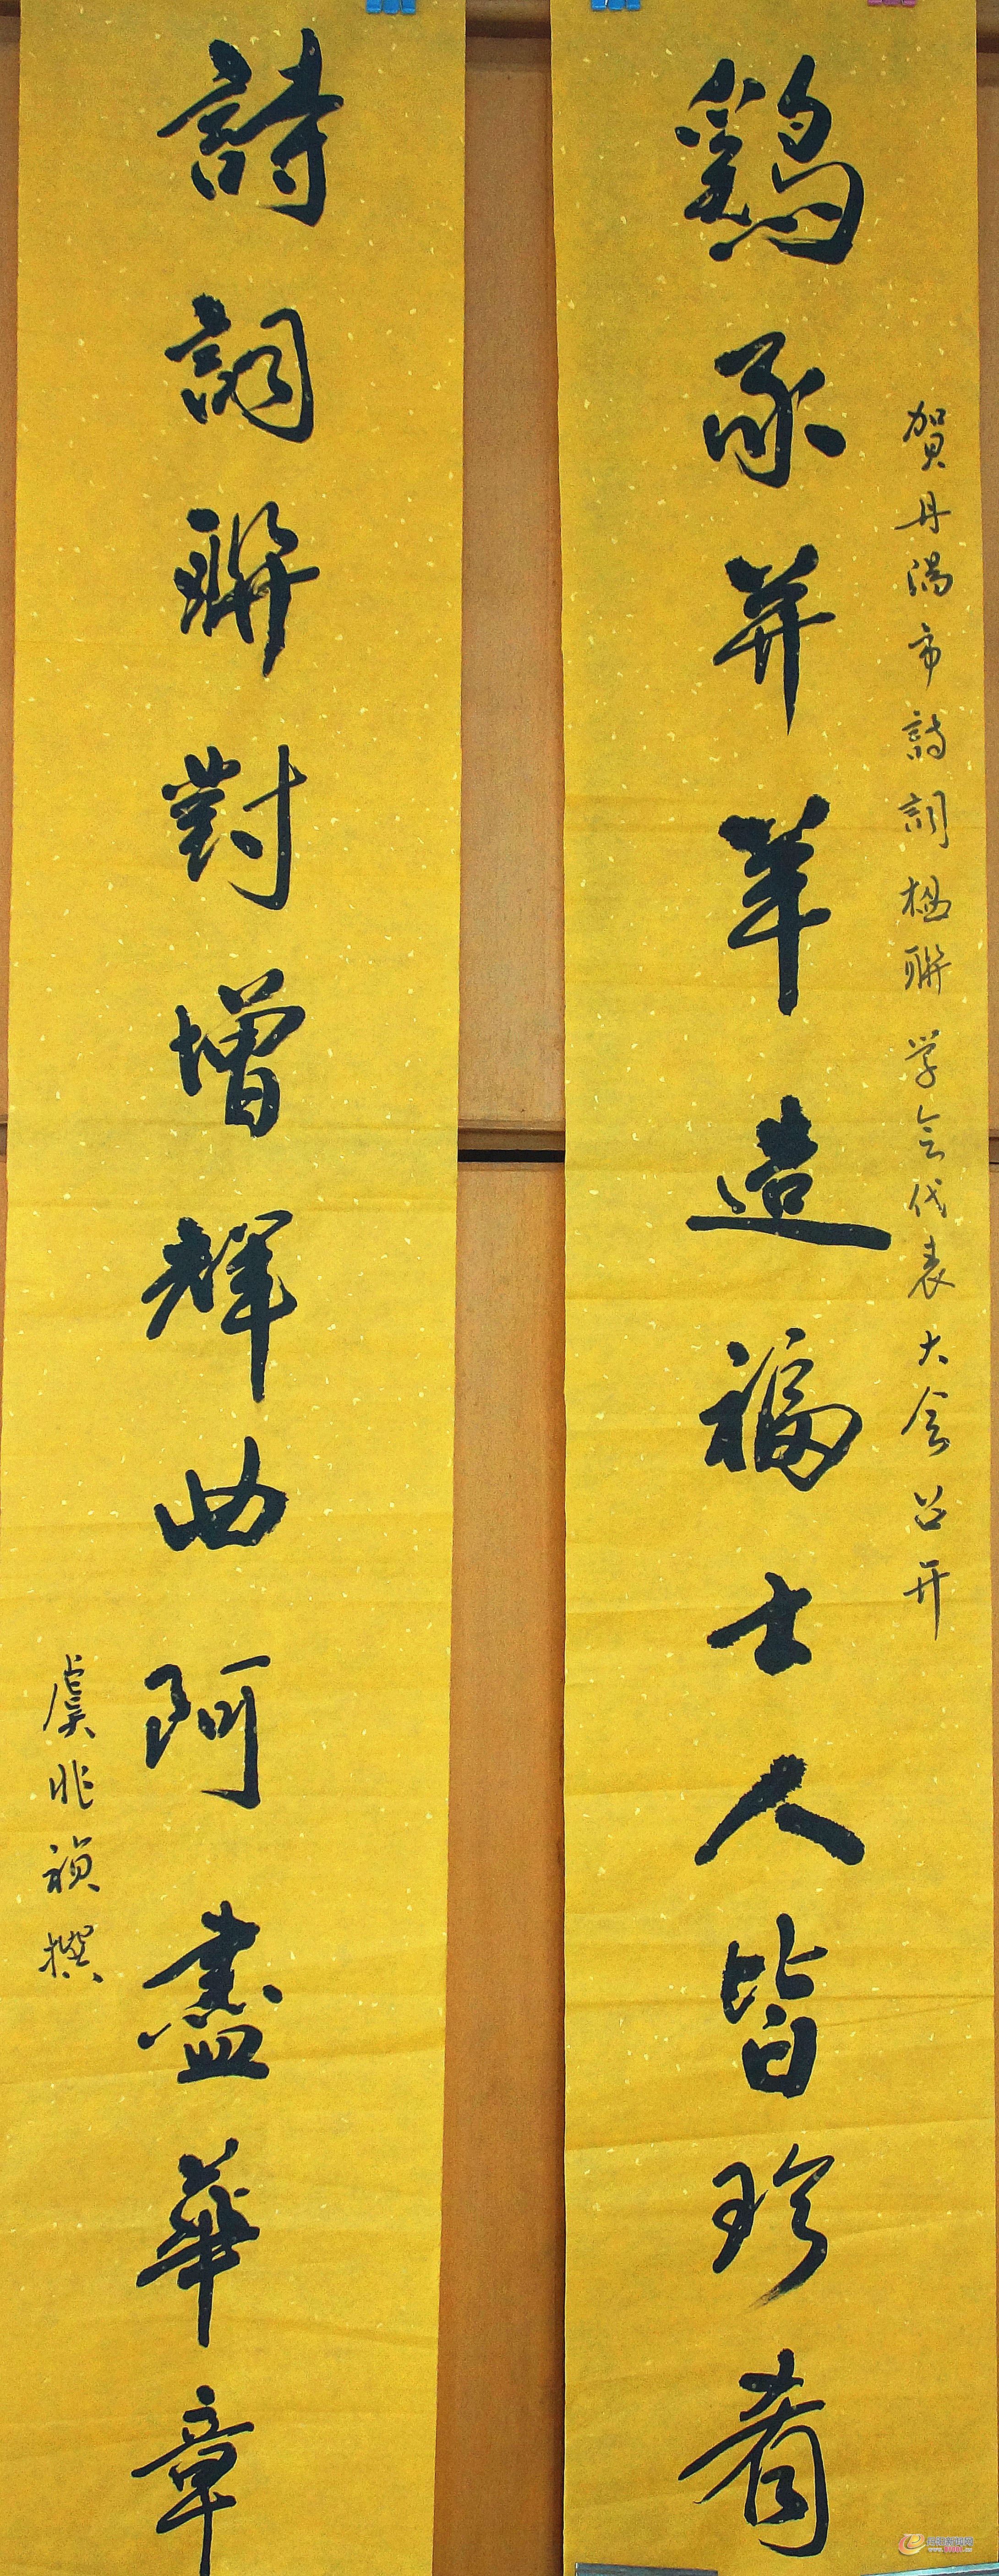 賀丹陽市詩詞楹聯学会代表大会召开
鷄豕并羊造福士人皆珍肴
詩詞聯對增輝曲阿盡華章
虞兆禎撰